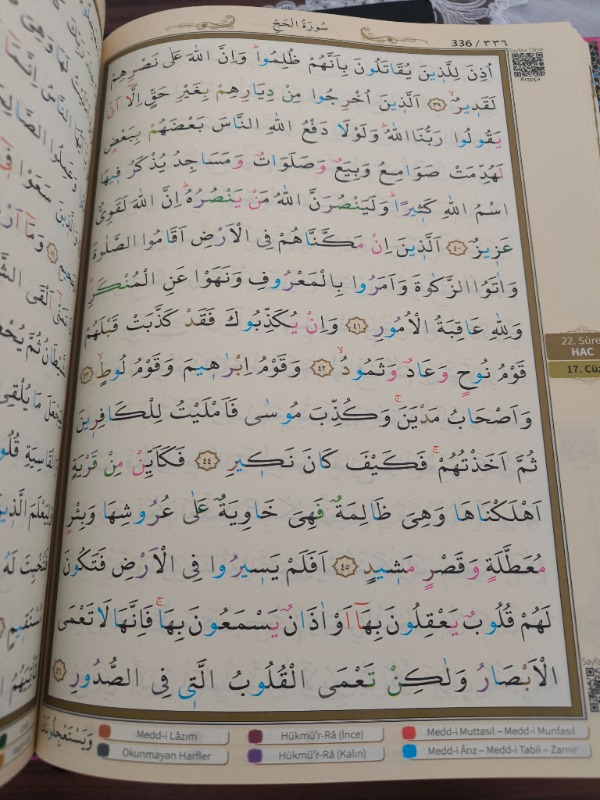 سُورَةُ الْحَجِّ
336 / ٣٣٦
اُذِنَ لِلَّذٖينَ يُقَاتَلُونَ بِاَنَّهُمْ ظُلِمُواؕ وَاِنَّ اللّٰهَ عَلٰى نَصْرِهِمْ
لَقَدٖيرٌۙ ﴿٣٩﴾ اَلَّذٖينَ اُخْرِجُوا مِنْ دِيَارِهِمْ بِغَيْرِ حَقٍّ اِلَّٓا اَنْ
يَقُولُوا رَبُّنَا اللّٰهُؕ وَلَوْلَا دَفْعُ اللّٰهِ النَّاسَ بَعْضَهُمْ بِبَعْضٍ
لَهُدِّمَتْ صَوَامِعُ وَبِيَعٌ وَصَلَوَاتٌ وَمَسَاجِدُ يُذْكَرُ فٖيهَا
اسْمُ اللّٰهِ كَثٖيرًاؕ وَلَيَنْصُرَنَّ اللّٰهُ مَنْ يَنْصُرُهُؕ اِنَّ اللّٰهَ لَقَوِيٌّ
عَزٖيزٌ ﴿٤٠﴾ اَلَّذٖينَ اِنْ مَكَّنَّاهُمْ فِى الْاَرْضِ اَقَامُوا الصَّلٰوةَ
وَاٰتَوُا الزَّكٰوةَ وَاَمَرُوا بِالْمَعْرُوفِ وَنَهَوْا عَنِ الْمُنْكَرِؕ
وَلِلّٰهِ عَاقِبَةُ الْاُمُورِ ﴿٤١﴾ وَاِنْ يُكَذِّبُوكَ فَقَدْ كَذَّبَتْ قَبْلَهُمْ
قَوْمُ نُوحٍ وَعَادٌ وَثَمُودُۙ ﴿٤٢﴾ وَقَوْمُ اِبْرٰهٖيمَ وَقَوْمُ لُوطٍۙ ﴿٤٣﴾
وَاَصْحَابُ مَدْيَنَۚ وَكُذِّبَ مُوسٰى فَاَمْلَيْتُ لِلْكَافِرٖينَ
ثُمَّ اَخَذْتُهُمْۚ فَكَيْفَ كَانَ نَكٖيرِ ﴿٤٤﴾ فَكَاَيِّنْ مِنْ قَرْيَةٍ
اَهْلَكْنَاهَا وَهِىَ ظَالِمَةٌ فَهِىَ خَاوِيَةٌ عَلٰى عُرُوشِهَا وَبِئْرٍ
مُعَطَّلَةٍ وَقَصْرٍ مَشٖيدٍ ﴿٤٥﴾ اَفَلَمْ يَسٖيرُوا فِى الْاَرْضِ فَتَكُونَ
لَهُمْ قُلُوبٌ يَعْقِلُونَ بِهَٓا اَوْ اٰذَانٌ يَسْمَعُونَ بِهَاۚ فَاِنَّهَا لَا تَعْمَى
الْاَبْصَارُ وَلٰكِنْ تَعْمَى الْقُلُوبُ الَّتٖى فِى الصُّدُورِ ﴿٤٦﴾
وَيَسْتَعْجِلُونَكَ
Medd-i Lâzım
Hükmü'r-Râ (İnce)
Medd-i Muttasıl – Medd-i Munfasıl
Okunmayan Harfler
Hükmü'r-Râ (Kalın)
Medd-i Ârız – Medd-i Tabiî – Zamir
Arapça
22. Sûre
HAC
17. Cüz